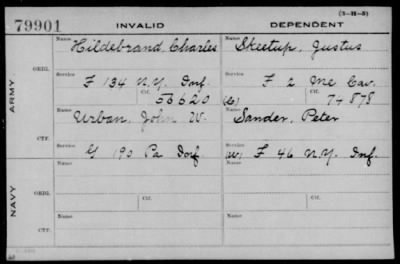 (3-H-8)
79901 INVALID DEPENDENT
Name Hildebrand, Charles Name Skeetup, Justus
ARMY
ORIG.
Service F 134 N.Y. Inf. Service F 2 Mc Cav.
Ctf. 56620 (C) Ctf. 74878
Name Urban, John W. Name Sander, Peter
CTF.
Service G 190 Pa Inf Service (W) F 46 N.Y. Inf.
NAVY
Name Ctf. Name Ctf.
ORIG.
Service Service
Name Name
CTF.
Service Service